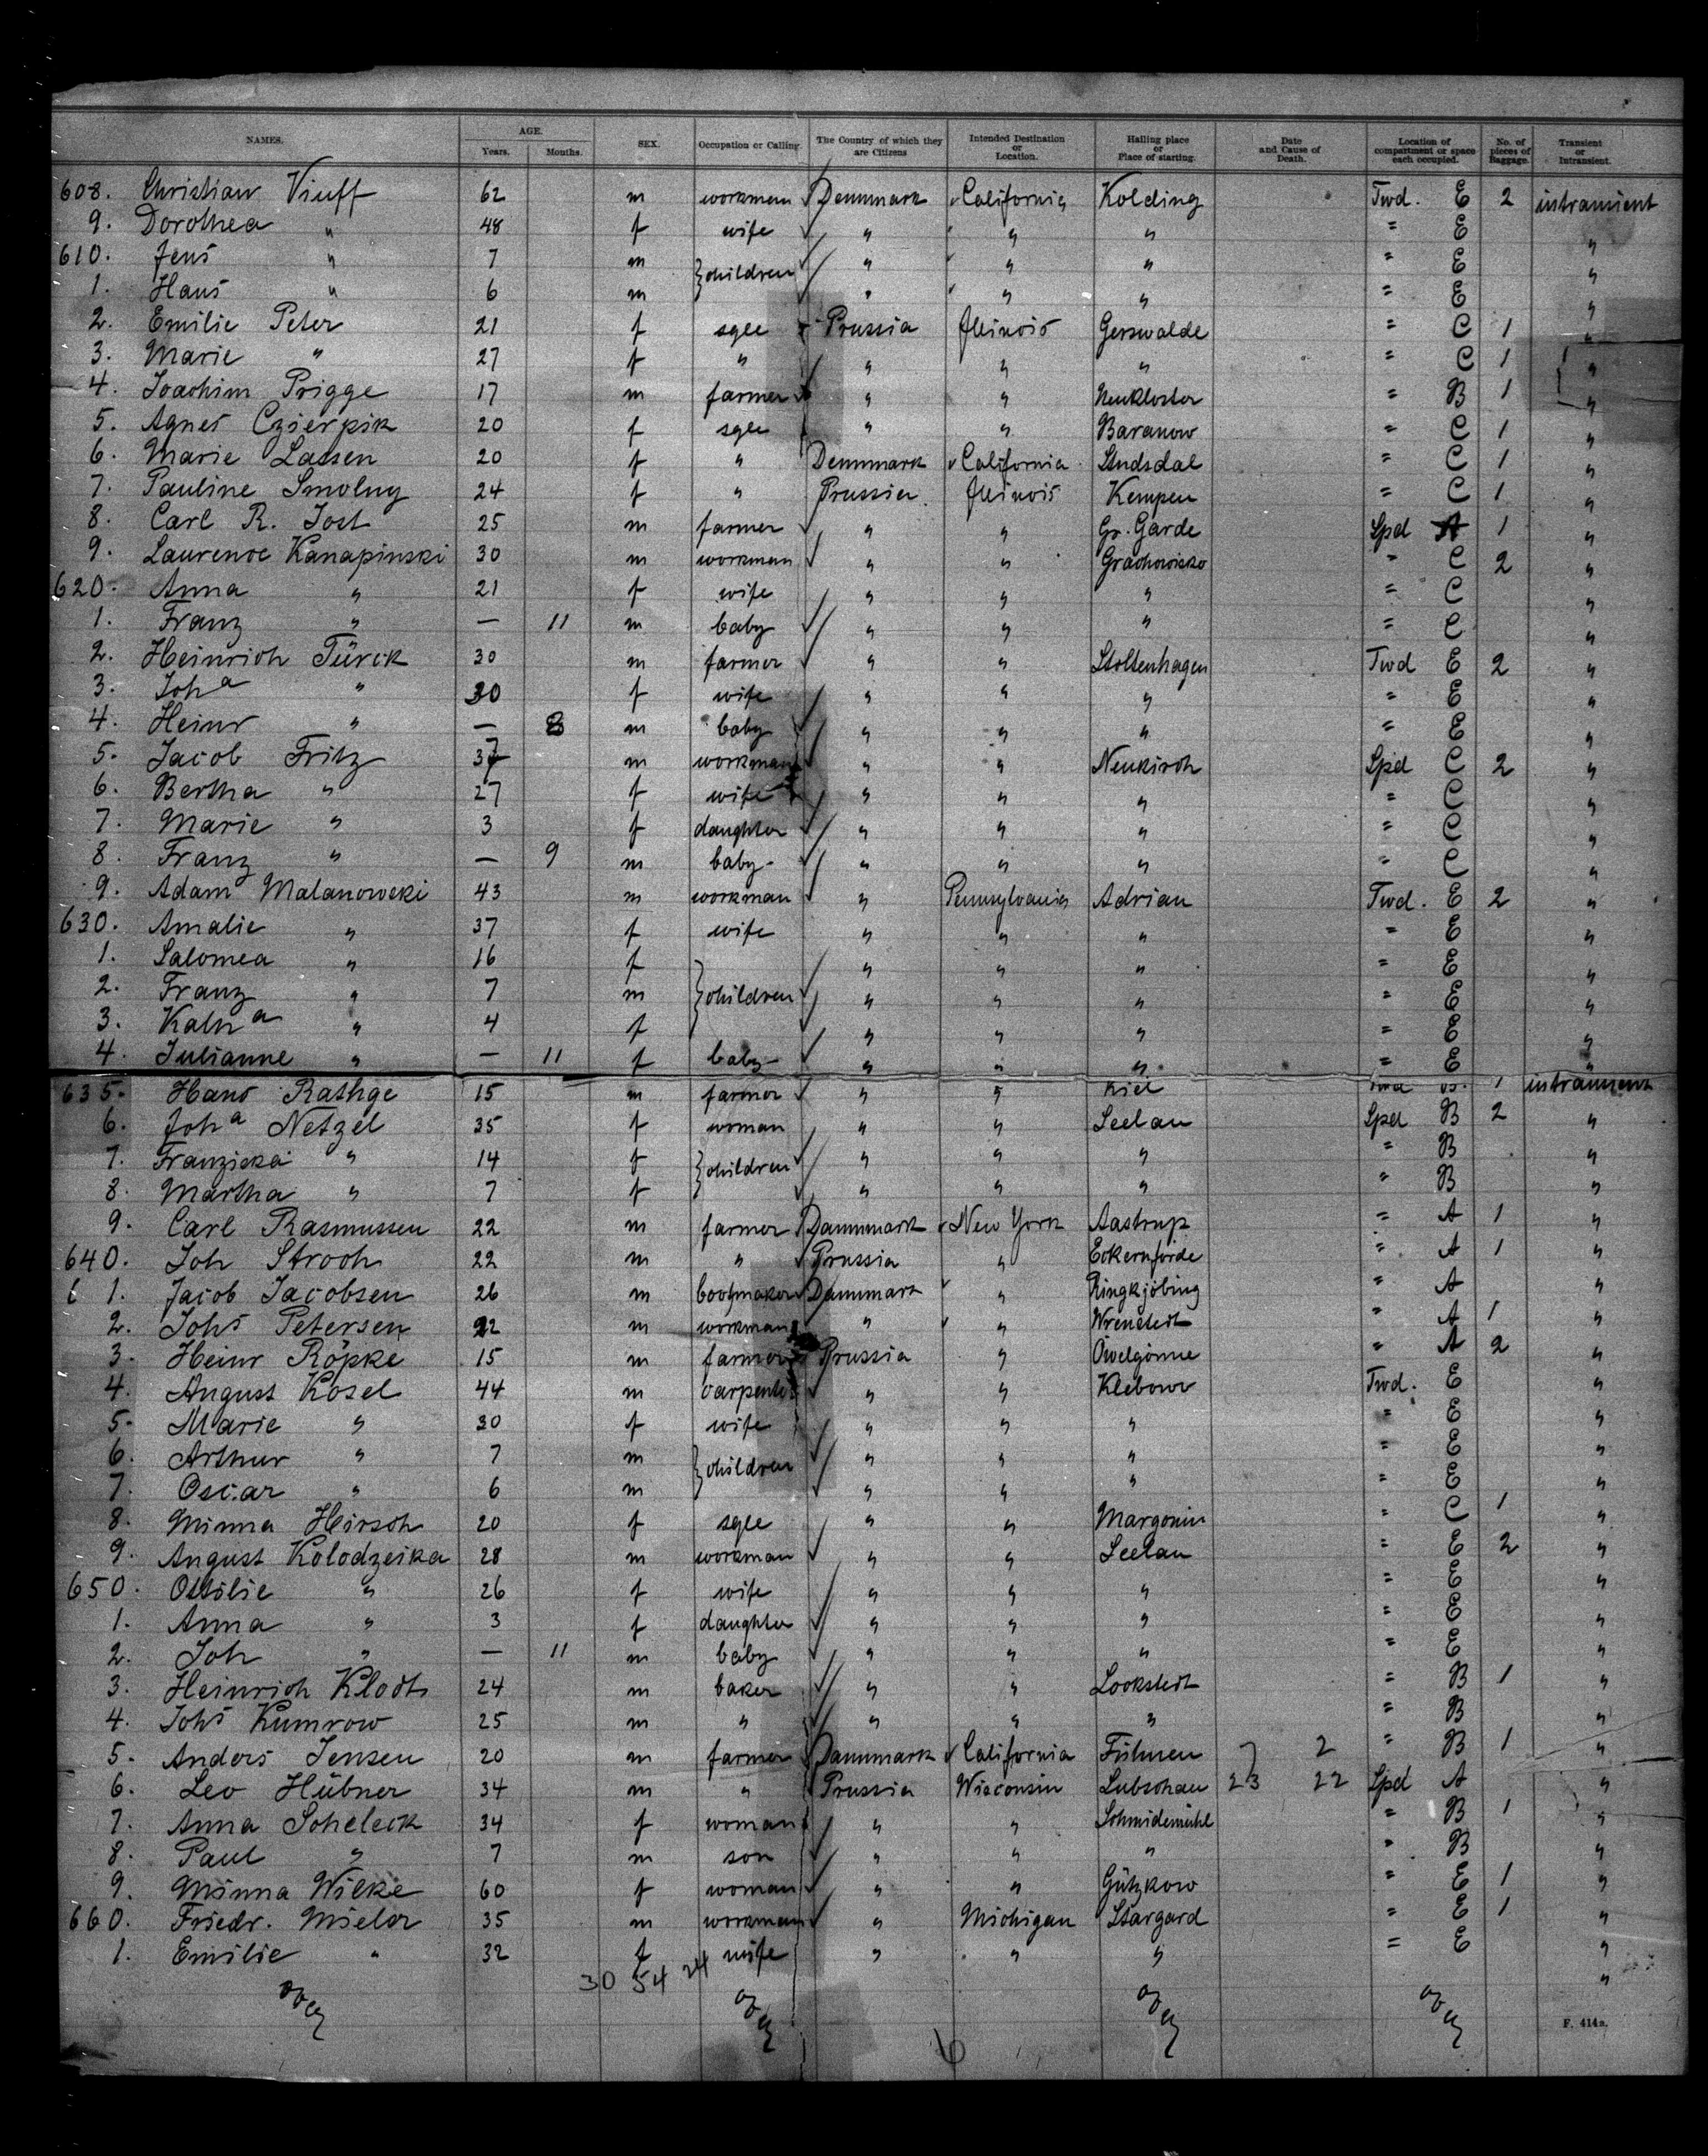 NAMES. AGE. Years. Months. SEX. Occupation or Calling. The Country of which they are Citizens Intended Destination or Location. Hailing place or Place of starting. Date and Cause of Death. Location of compartment or space each occupied. No. of pieces of Baggage. Transient or Intransient.
608. Christian Viuff 62 m workman Dennmark California Kolding Twd. E 2 intransient
9. Dorothea " 48 f wife " " " " E "
610. Jens " 7 m } children " " " " E "
1. Hans " 6 m " " " " E "
2. Emilie Peter 21 f sgle Prussia Illinois Gerswalde " C 1 "
3. Marie " 27 f " " " " " C 1 "
4. Joachim Prigge 17 m farmer " " Neukloster " B 1 "
5. Agnes Czierpik 20 f sgle " " Baranow " C 1 "
6. Marie Lassen 20 f " Dennmark California Studsdal " C 1 "
7. Pauline Smolny 24 f " Prussia Illinois Kempen " C 1 "
8. Carl R. Jost 25 m farmer " " Gr. Garde Spd A 1 "
9. Laurence Kanapinski 30 m workman " " " C 2 "
620. Anna " 21 f wife " " " " C "
1. Franz " — 11 m baby " " " " C "
2. Heinrich Türck 30 m farmer " " Stoltenhagen Twd E 2 "
3. Joha " 30 f wife " " " " E "
4. Heinr " — 8 m baby " " " " E "
5. Jacob Fritz 37 m workman " " Neukirch Spd C 2 "
6. Bertha " 27 f wife " " " " C "
7. Marie " 3 f daughter " " " " C "
8. Franz " — 9 m baby " " " " C "
9. Adam Malanowski 43 m workman " Pennsylvania Adrian Twd. E 2 "
630. Amalie " 37 f wife " " " " E "
1. Salomea " 16 f } children " " " " E "
2. Franz " 7 m " " " " E "
3. Katha " 4 f " " " " E "
4. Julianne " — 11 f baby " " " " E "
635. Hans Rathge 15 m farmer " " Kiel Twd B. 1 intransient
6. Joha Netzel 35 f woman " " Seelau Spd B 2 "
7. Franziska " 14 f } children " " " " B "
8. Martha " 7 f " " " " B "
9. Carl Rasmussen 22 m farmer Dannmark New York Aastrup " A 1 "
640. Joh Strooh 22 m " Prussia " Eckernförde " A 1 "
1. Jacob Jacobsen 26 m bootmaker Dannmark " Ringkjöbing " A "
2. Johs Petersen 22 m workman " " Wrenstedt " A 1 "
3. Heinr Röpke 15 m farmer Prussia " Övelgönne " A 2 "
4. August Kosel 44 m carpenter " " Klebow Twd. E "
5. Marie " 30 f wife " " " " E "
6. Arthur " 7 m } children " " " " E "
7. Oscar " 6 m " " " " E "
8. Minna Hirsch 20 f sgle " " Margonin " C 1 "
9. August Kolodzeika 28 m workman " " Seelau " E 2 "
650. Ottilie " 26 f wife " " " " E "
1. Anna " 3 f daughter " " " " E "
2. Joh " — 11 m baby " " " " E "
3. Heinrich Klodt 24 m baker " " Lockstedt " B 1 "
4. Johs Kumrow 25 m " " " " " B "
5. Anders Jensen 20 m farmer Dannmark California Fühnen 7 2 " B 1 "
6. Leo Hübner 34 m " Prussia Wisconsin Lubschau 23 22 Spd A "
7. Anna Scheleck 34 f woman " " Schmidemühl " B 1 "
8. Paul " 7 m son " " " " B "
9. Minna Wilke 60 f woman " " Gützkow " E 1 "
660. Friedr. Mieler 35 m workman " Michigan Stargard " E 1 "
1. Emilie " 32 f wife " " " " E "
30 54 24 "
6
F. 414a.